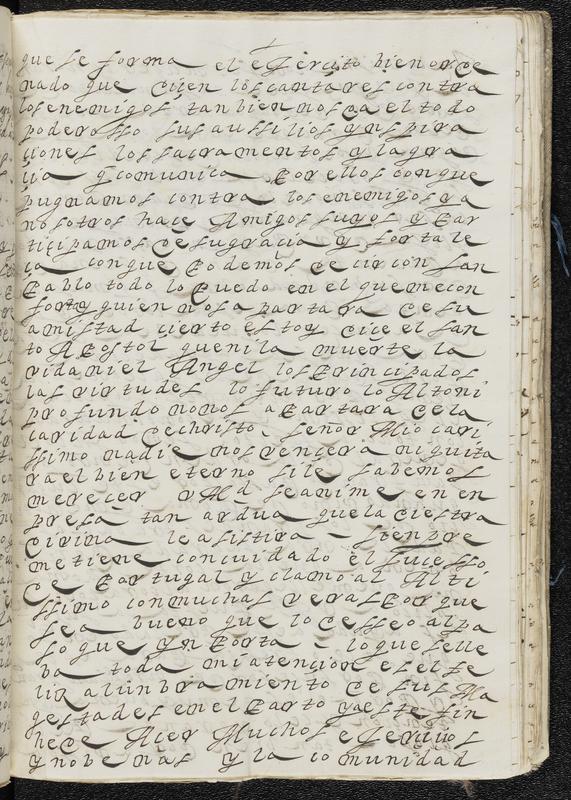 que se forma el ejército bien orde
nado que dicen los cantares contra
los enemigos tanbien nos da el todo
poderosso sus aussilios ynspira
ciones los sacramentos y la gra
cia y comunica Por ellos con que
pugnamos contra los enemigos y a
nosotros hace Amigos suyos y Par
ticipamos de su gracia y fortale
ça con que Podemos decir con san
Pablo todo lo Puedo en el que me con
forta y quien nos apartara de su
amistad cierto estoy dice el san
to Apostol que ni la muerte la
vida ni el Angel los Principados
las virtudes lo futuro lo Alto ni
profundo no nos aPartara de la
caridad de christo señor Mio cari
ssimo nadie nos vencera ni quita
ra el bien eterno si le sabemos
merecer VMd se anime en en
presa tan ardua que la diestra
Divina le asistira – sienpre
me tiene con cuidado el sucesso
de Portugal y clamo al Alti
ssimo con muchas veras Porque
sea bueno que lo desseo al pa
so que ynPorta – lo que se lle
ba toda mi atencion es el fe
liz alunbramiento de sus Ma
gestades en el Parto y a este fin
hede Acer Muchos ejercicios
y nobenas y la comunidad